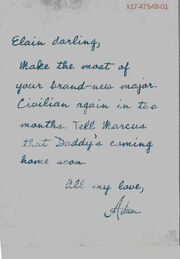 X17-47548-01
Elain darling,
Make the most of
your brand-new major.
Civilian again in two
months. Tell Marcus
that Daddy's coming
home soon.
All my love,
Adam